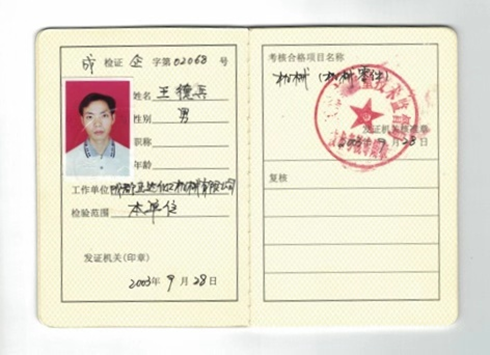 成 检证 企 字第02068 号
姓名 王德兵
性别 男
职称
年龄
工作单位
检验范围 本单位
发证机关(印章)
2003年 9 月 28 日
考核合格项目名称
机械 (机械零件)
技术监督
发证机关核准章
2003年 9 月 28 日
复核